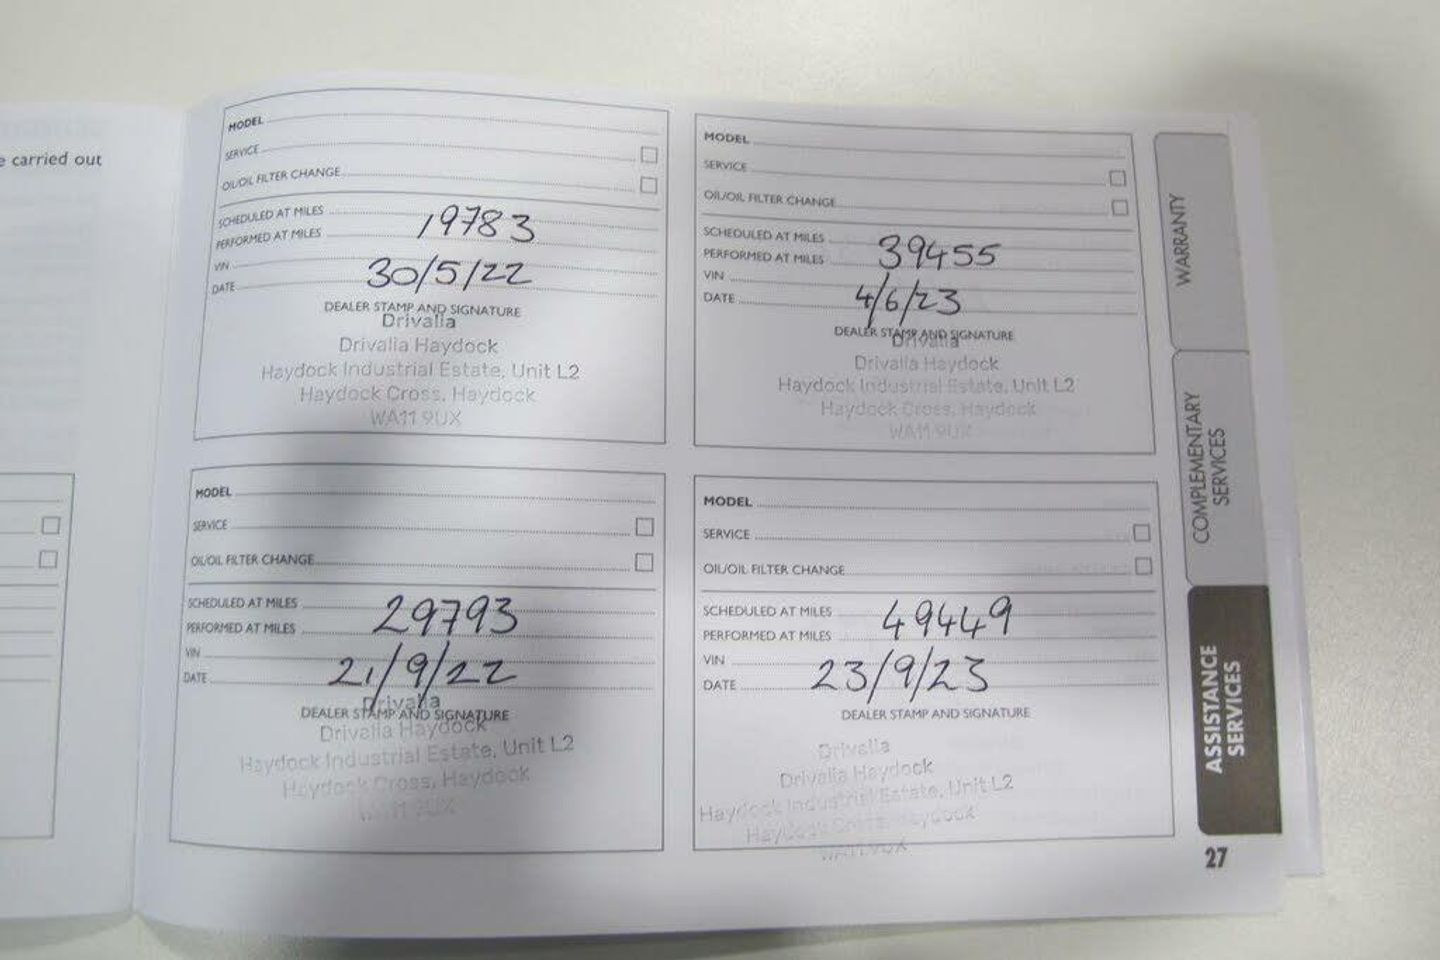 e carried out
MODEL
SERVICE
OIL/OIL FILTER CHANGE
SCHEDULED AT MILES
PERFORMED AT MILES 19783
VIN
DATE 30/5/22
DEALER STAMP AND SIGNATURE
Drivalia
Drivalia Haydock
Haydock Industrial Estate, Unit L2
Haydock Cross, Haydock
WA11 9UX
MODEL
SERVICE
OIL/OIL FILTER CHANGE
SCHEDULED AT MILES
PERFORMED AT MILES 39455
VIN
DATE 4/6/23
DEALER STAMP AND SIGNATURE
Drivalia
Drivalia Haydock
Haydock Industrial Estate, Unit L2
Haydock Cross, Haydock
WA11 9UX
MODEL
SERVICE
OIL/OIL FILTER CHANGE
SCHEDULED AT MILES
PERFORMED AT MILES 29793
VIN
DATE 21/9/22
Drivalia
DEALER STAMP AND SIGNATURE
Drivalia Haydock
Haydock Industrial Estate, Unit L2
Haydock Cross, Haydock
WA11 9UX
MODEL
SERVICE
OIL/OIL FILTER CHANGE
SCHEDULED AT MILES
PERFORMED AT MILES 49449
VIN
DATE 23/9/23
DEALER STAMP AND SIGNATURE
Drivalia
Drivalia Haydock
Haydock Industrial Estate, Unit L2
Haydock Cross, Haydock
WA11 9UX
WARRANTY
COMPLEMENTARY
SERVICES
ASSISTANCE
SERVICES
27